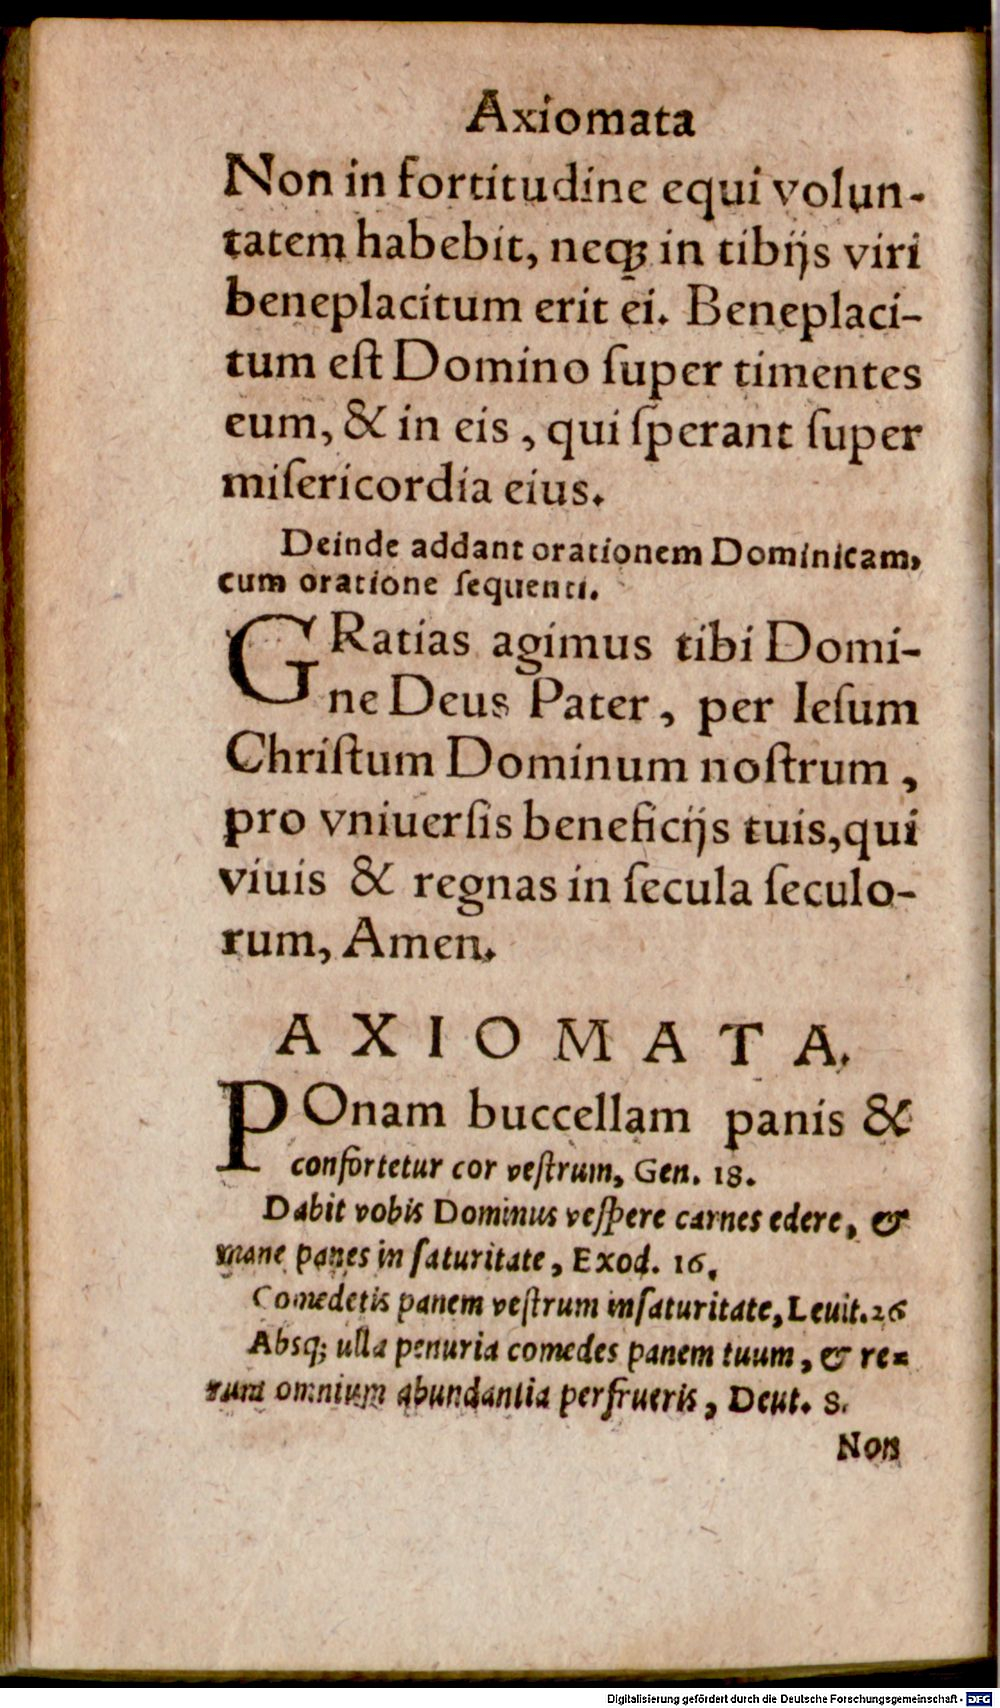 Axiomata
Non in fortitudine equi volun-
tatem habebit, neqꝫ in tibijs viri
beneplacitum erit ei. Beneplaci-
tum eſt Domino ſuper timentes
eum, & in eis, qui ſperant ſuper
miſericordia eius.
Deinde addant orationem Dominicam,
cum oratione ſequenti.
GRatias agimus tibi Domi-
ne Deus Pater, per Ieſum
Chriſtum Dominum noſtrum,
pro vniuerſis beneficijs tuis, qui
viuis & regnas in ſecula ſeculo-
rum, Amen.
AXIOMATA.
POnam buccellam panis &
confortetur cor veſtrum, Gen. 18.
Dabit vobis Dominus veſpere carnes edere, &
mane panes in ſaturitate, Exod. 16.
Comedetis panem veſtrum in ſaturitate, Leuit. 26
Absq; ulla penuria comedes panem tuum, & re=
rum omnium abundantia perfrueris, Deut. 8.
Non
Digitalisierung gefördert durch die Deutsche Forschungsgemeinschaft - DFG